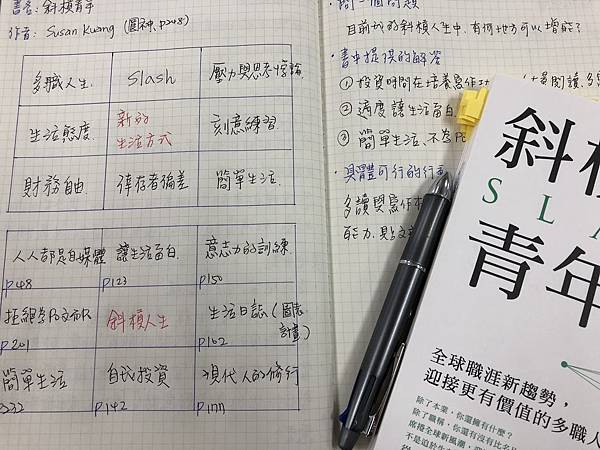 書名:斜槓青年
作者: Susan Kuang (圓神, p248)
多職人生. Slash 壓力與思考悖論
生活態度. 新的生活方式 刻意練習
財務自由. 倖存者偏差 簡單生活.
人人都是自媒體 p48 讓生活留白. p123 意志力的訓練 p150
拒絕為PO文而PO p201 斜槓人生 生活日誌(圖表計畫) p162
簡單生活 自我投資 p142 現代人的修行 p177
問一個問題
目前我的斜槓人生中,有何地方可以增能?
・書中提供的解答
① 投資時間在培養寫作功
② 適度讓生活留白
③ 簡單生活、不為PO
・具體可行的行
多讀與寫作
能力.貼文
斜槓
青年
SLA
全球職涯新趨勢,
迎接更有價值的多職人
除了本業,你還擁有什麼?
除了職稱,你還有沒有比名片
席捲全球新風潮,
不是迫於生